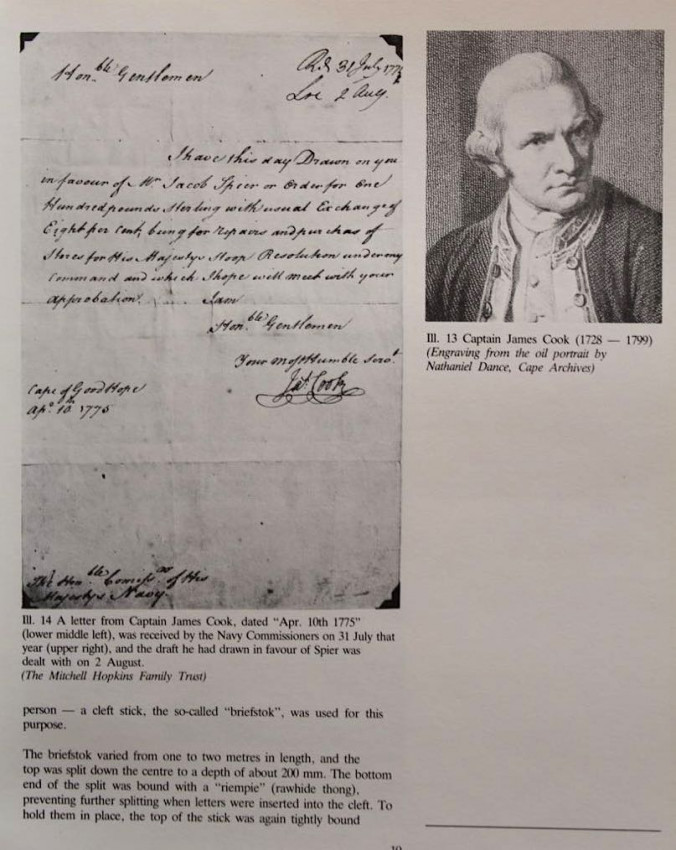 Hon.ble Gentlemen
Rd. 31 July 1775
2 Aug.
I have this day Drawn on you
in favour of Mr Jacob Spier or Order for One
Hundred pounds Sterling with usual Exchange of
Eight per Cent, being for repairs and purchas of
Stores for His Majestys Sloop Resolution under my
Command and which I hope will meet with your
approbation. I am
Hon.ble Gentlemen
Your most Humble Serv.t
Jas. Cook
Cape of Good Hope
Ap. 10th 1775
The Hon.ble Comiss.rs of His
Majestys Navy
Ill. 14 A letter from Captain James Cook, dated “Apr. 10th 1775”
(lower middle left), was received by the Navy Commissioners on 31 July that
year (upper right), and the draft he had drawn in favour of Spier was
dealt with on 2 August.
(The Mitchell Hopkins Family Trust)
person — a cleft stick, the so-called “briefstok”, was used for this
purpose.
The briefstok varied from one to two metres in length, and the
top was split down the centre to a depth of about 200 mm. The bottom
end of the split was bound with a “riempie” (rawhide thong),
preventing further splitting when letters were inserted into the cleft. To
hold them in place, the top of the stick was again tightly bound
Ill. 13 Captain James Cook (1728 — 1799)
(Engraving from the oil portrait by
Nathaniel Dance, Cape Archives)